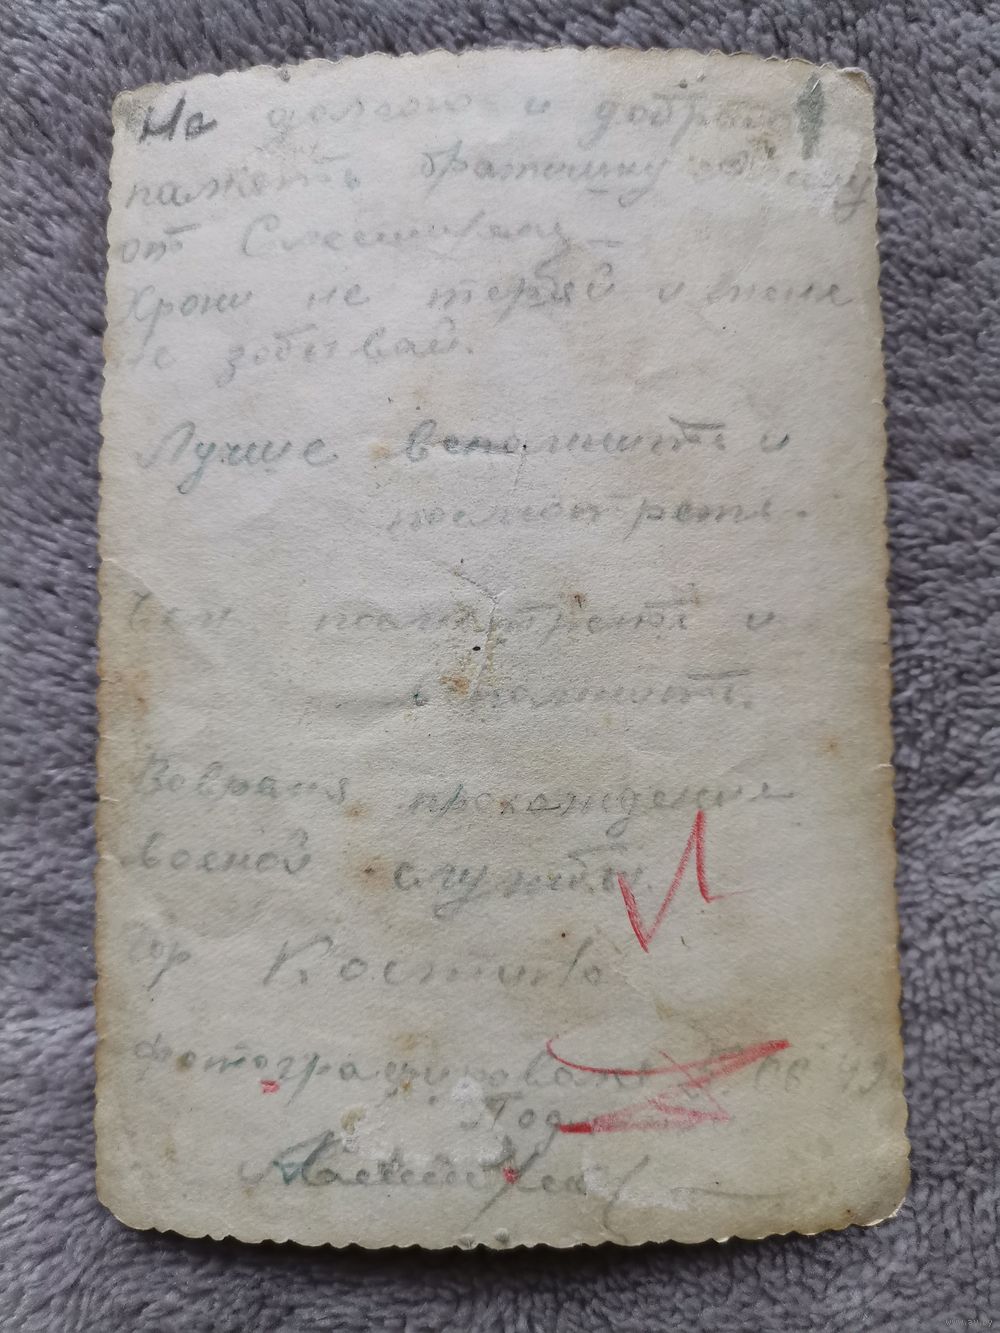 На долгою и добрую
память братишку
от
Храни не теряй и меня
не зобывай.
Лучше вспомнить и
посмотреть.
Чем посмотреть и
вспомнить.
Вовремя прохождения
военой службы.
гор
Фотографировалс 06 49
год